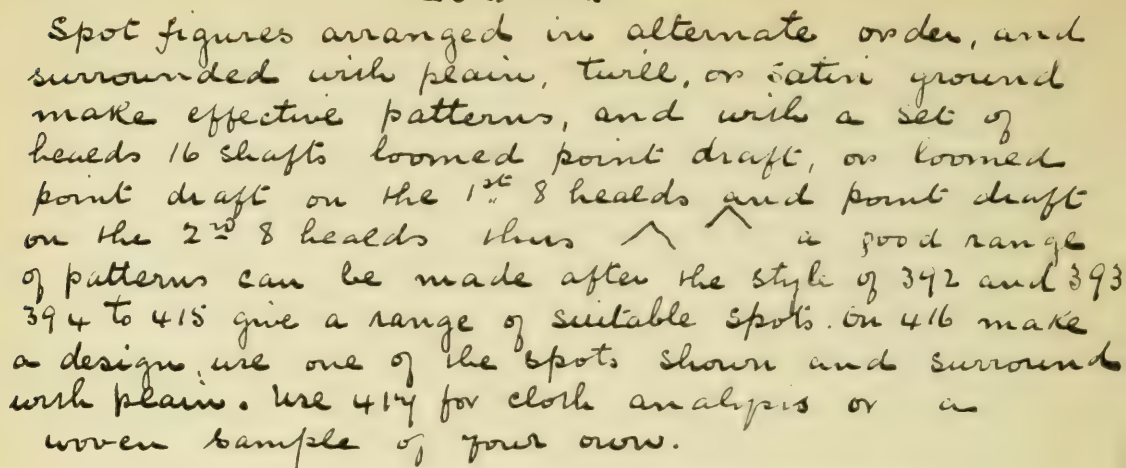 Spot figures arranged in alternate order, and
surrounded with plain, twill, or satin ground
make effective patterns, and with a set of
healds 16 shafts loomed point draft, or loomed
point draft on the 1st 8 healds and point draft
on the 2nd 8 healds thus ^ ^ a good range
of patterns can be made after the style of 392 and 393
394 to 415 give a range of suitable spots. On 416 make
a design, use one of the spots shown and surround
with plain. Use 417 for cloth analysis or a
woven sample of your own.